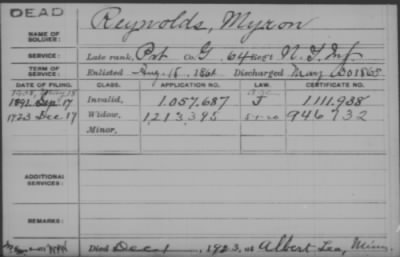 DEAD
NAME OF SOLDIER: Reynolds, Myron
SERVICE: Late rank, Pvt Co. G, 64 Regt N.Y. Inf.
TERM OF SERVICE: Enlisted Aug. 18, 1861 Discharged May 1865
DATE OF FILING. CLASS. APPLICATION NO. LAW. CERTIFICATE NO.
1891 Sep 17 Invalid, 1.057.687 J 1.111.938
1923 Dec 17 Widow, 1213395 946732
Minor,
ADDITIONAL SERVICES:
REMARKS:
Died Dec 1, 1923, at Albert Lea, Minn.